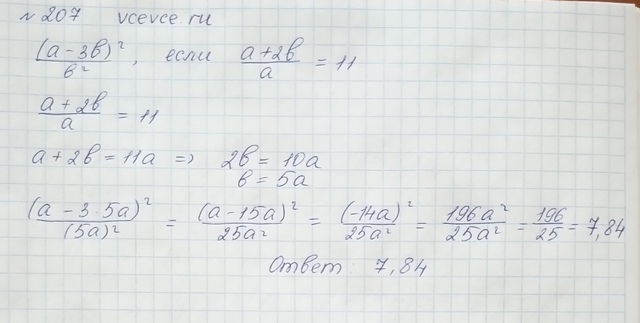 № 207 vcevce ru
(a - 3b)² / b², если (a + 2b) / a = 11
(a + 2b) / a = 11
a + 2b = 11a => 2b = 10a
b = 5a
(a - 3·5a)² / (5a)² = (a - 15a)² / 25a² = (-14a)² / 25a² = 196a² / 25a² = 196 / 25 = 7,84
Ответ 7,84